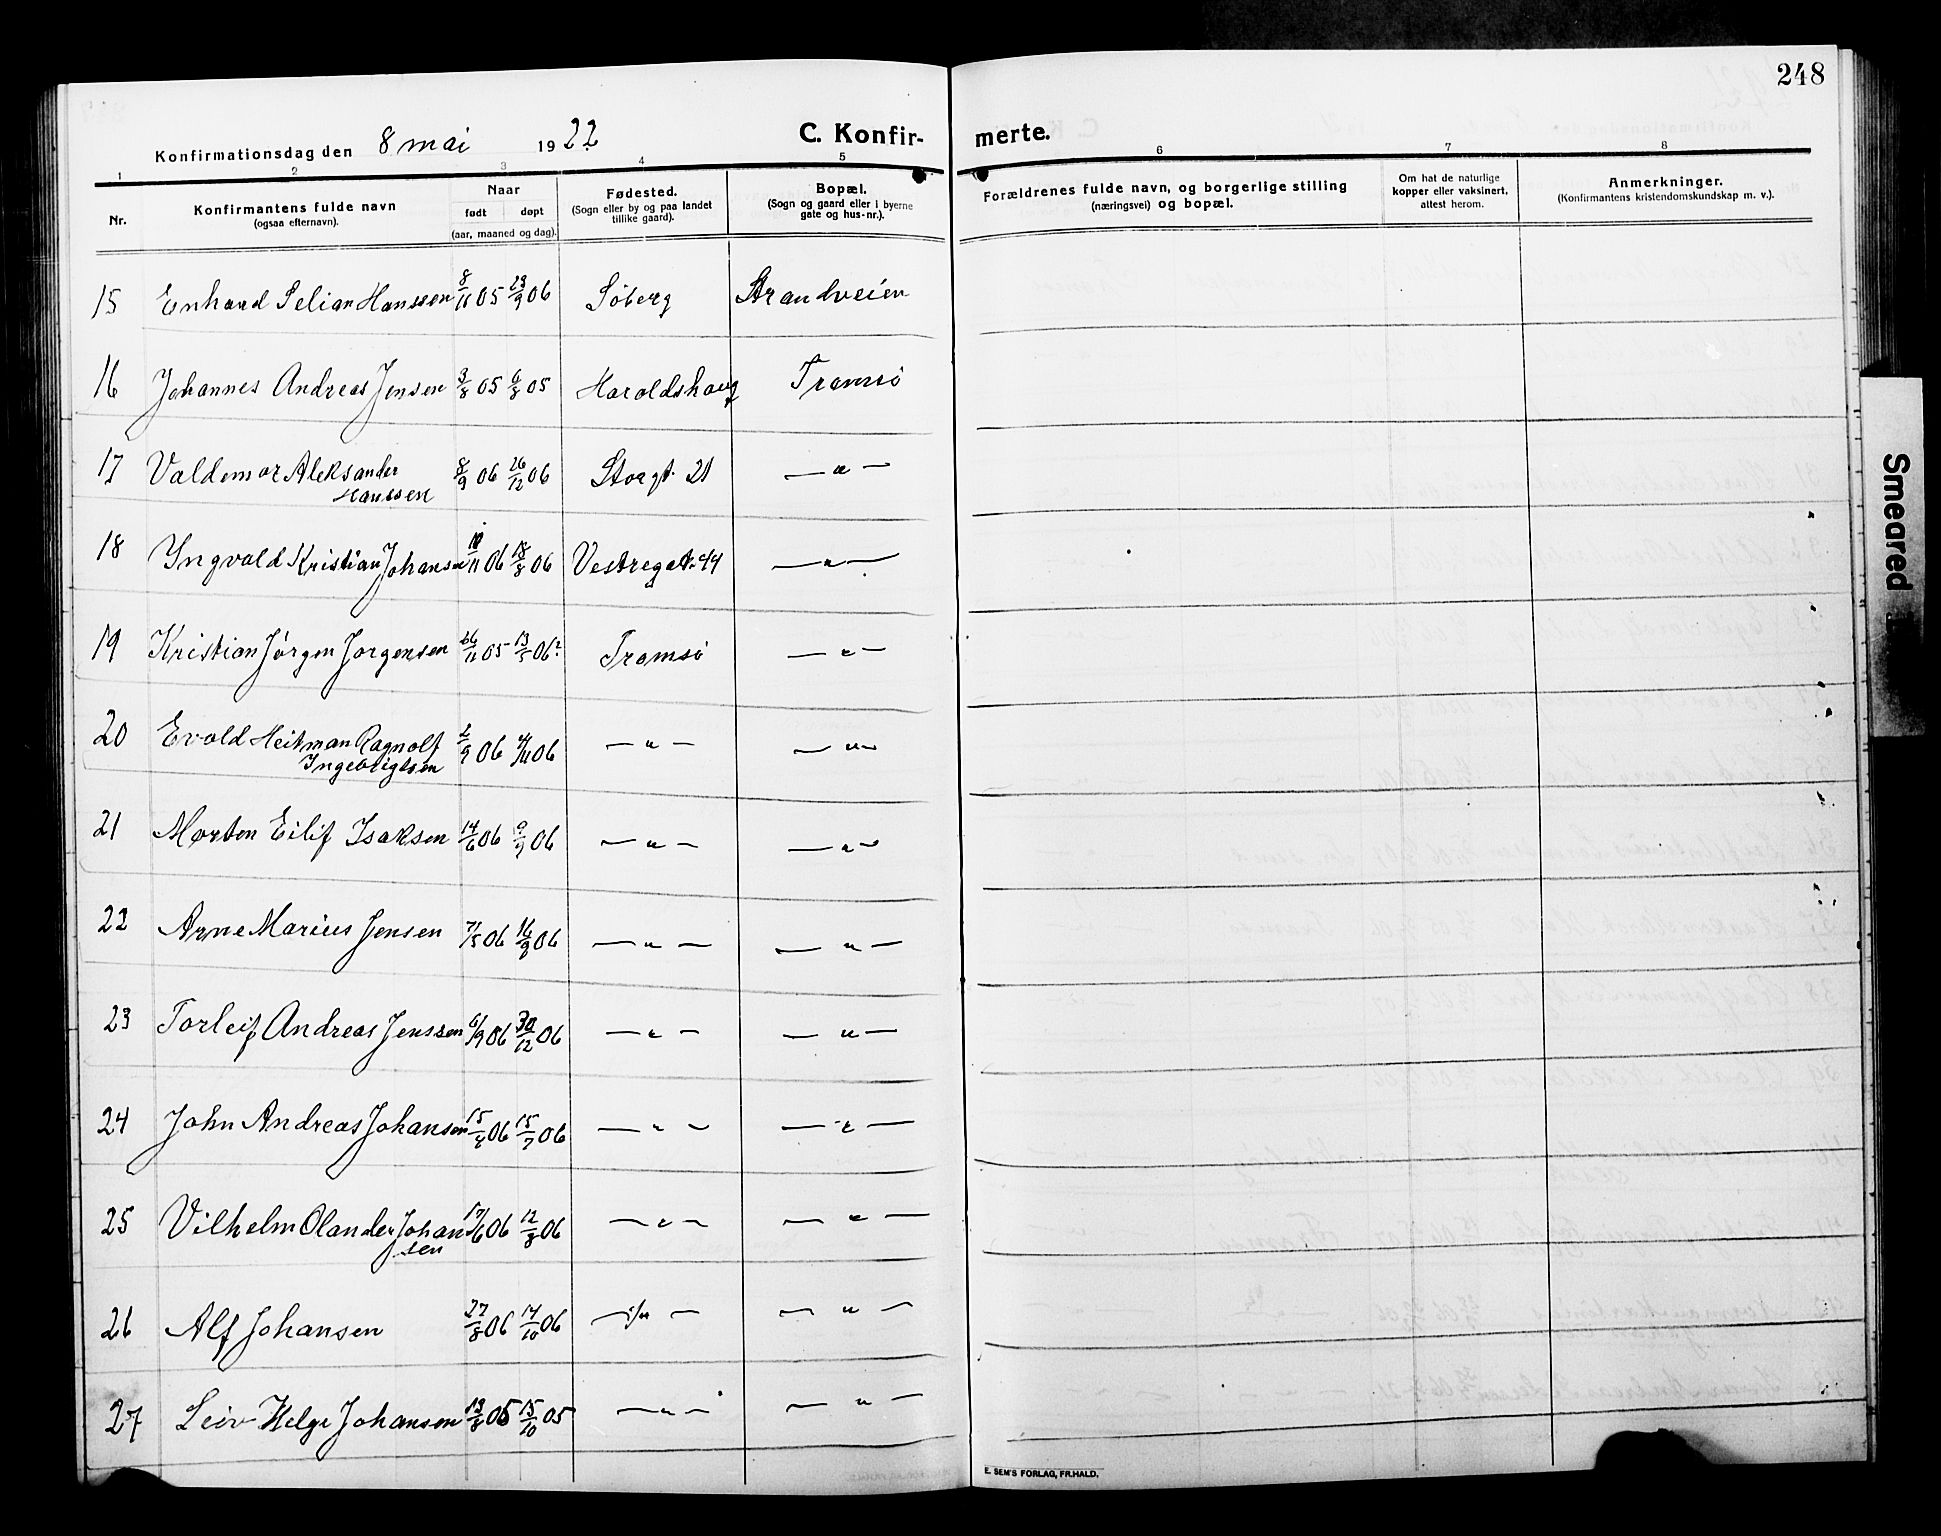 248
Konfirmationsdag den 8 mai 1922
C. Konfir-
merte.
1 2 3 4 5 6 7 8
Nr.
Konfirmantens fulde navn
(ogsaa efternavn).
Naar
født døpt
(aar, maaned og dag).
Fødested.
(Sogn eller by og paa landet
tillike gaard).
Bopæl.
(Sogn og gaard eller i byerne
gate og hus-nr.).
Forældrenes fulde navn, og borgerlige stilling
(næringsvei) og bopæl.
Om hat de naturlige
kopper eller vaksinert,
attest herom.
Anmerkninger.
(Konfirmantens kristendomskundskap m. v.).
15 Enhard Selian Hanssen 8/11 05 23/9 06 Söberg Strandveien
16 Johannes Andreas Jensen 3/8 05 6/8 05 Haroldshaug Tromsö
17 Valdemar Aleksander 8/9 06 26/12 06 Storgt. 21 — " —
Hanssen
18 Yngvald Kristian Johansen /11 06 18/8 06 Vestregat. 44 — " —
19 Kristian Jørgen Jørgensen 26/11 05 13/5 06? Tromsö — " —
20 Evald Heitman Ragnolf 2/9 06 4/11 06 — " — — " —
Ingebrigtsen
21 Morten Eilif Isaksen 14/6 06 9/9 06 — " — — " —
22 Arne Marius Jensen 7/5 06 16/9 06 — " — — " —
23 Torleif Andreas Jenssen 6/9 06 30/12 06 — " — — " —
24 John Andreas Johansen 15/4 06 15/7 06 — " — — " —
25 Vilhelm Olander Johan 17/6 06 12/8 06 — " — — " —
sen
26 Alf Johansen 27/8 06 14/10 06 — " — — " —
27 Leiv Helge Johansen 13/8 05 15/10 05 — " — — " —
E. SEM'S FORLAG, FR.HALD.
Smeared